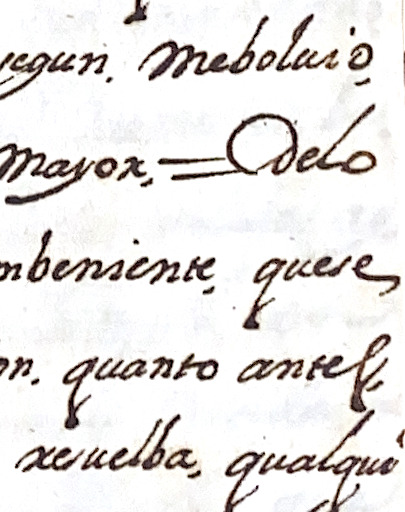 segun. Mebolvio
Mayor, = Odelo
mbeniente, quese
on. quanto antes,
resuelba, qualqui